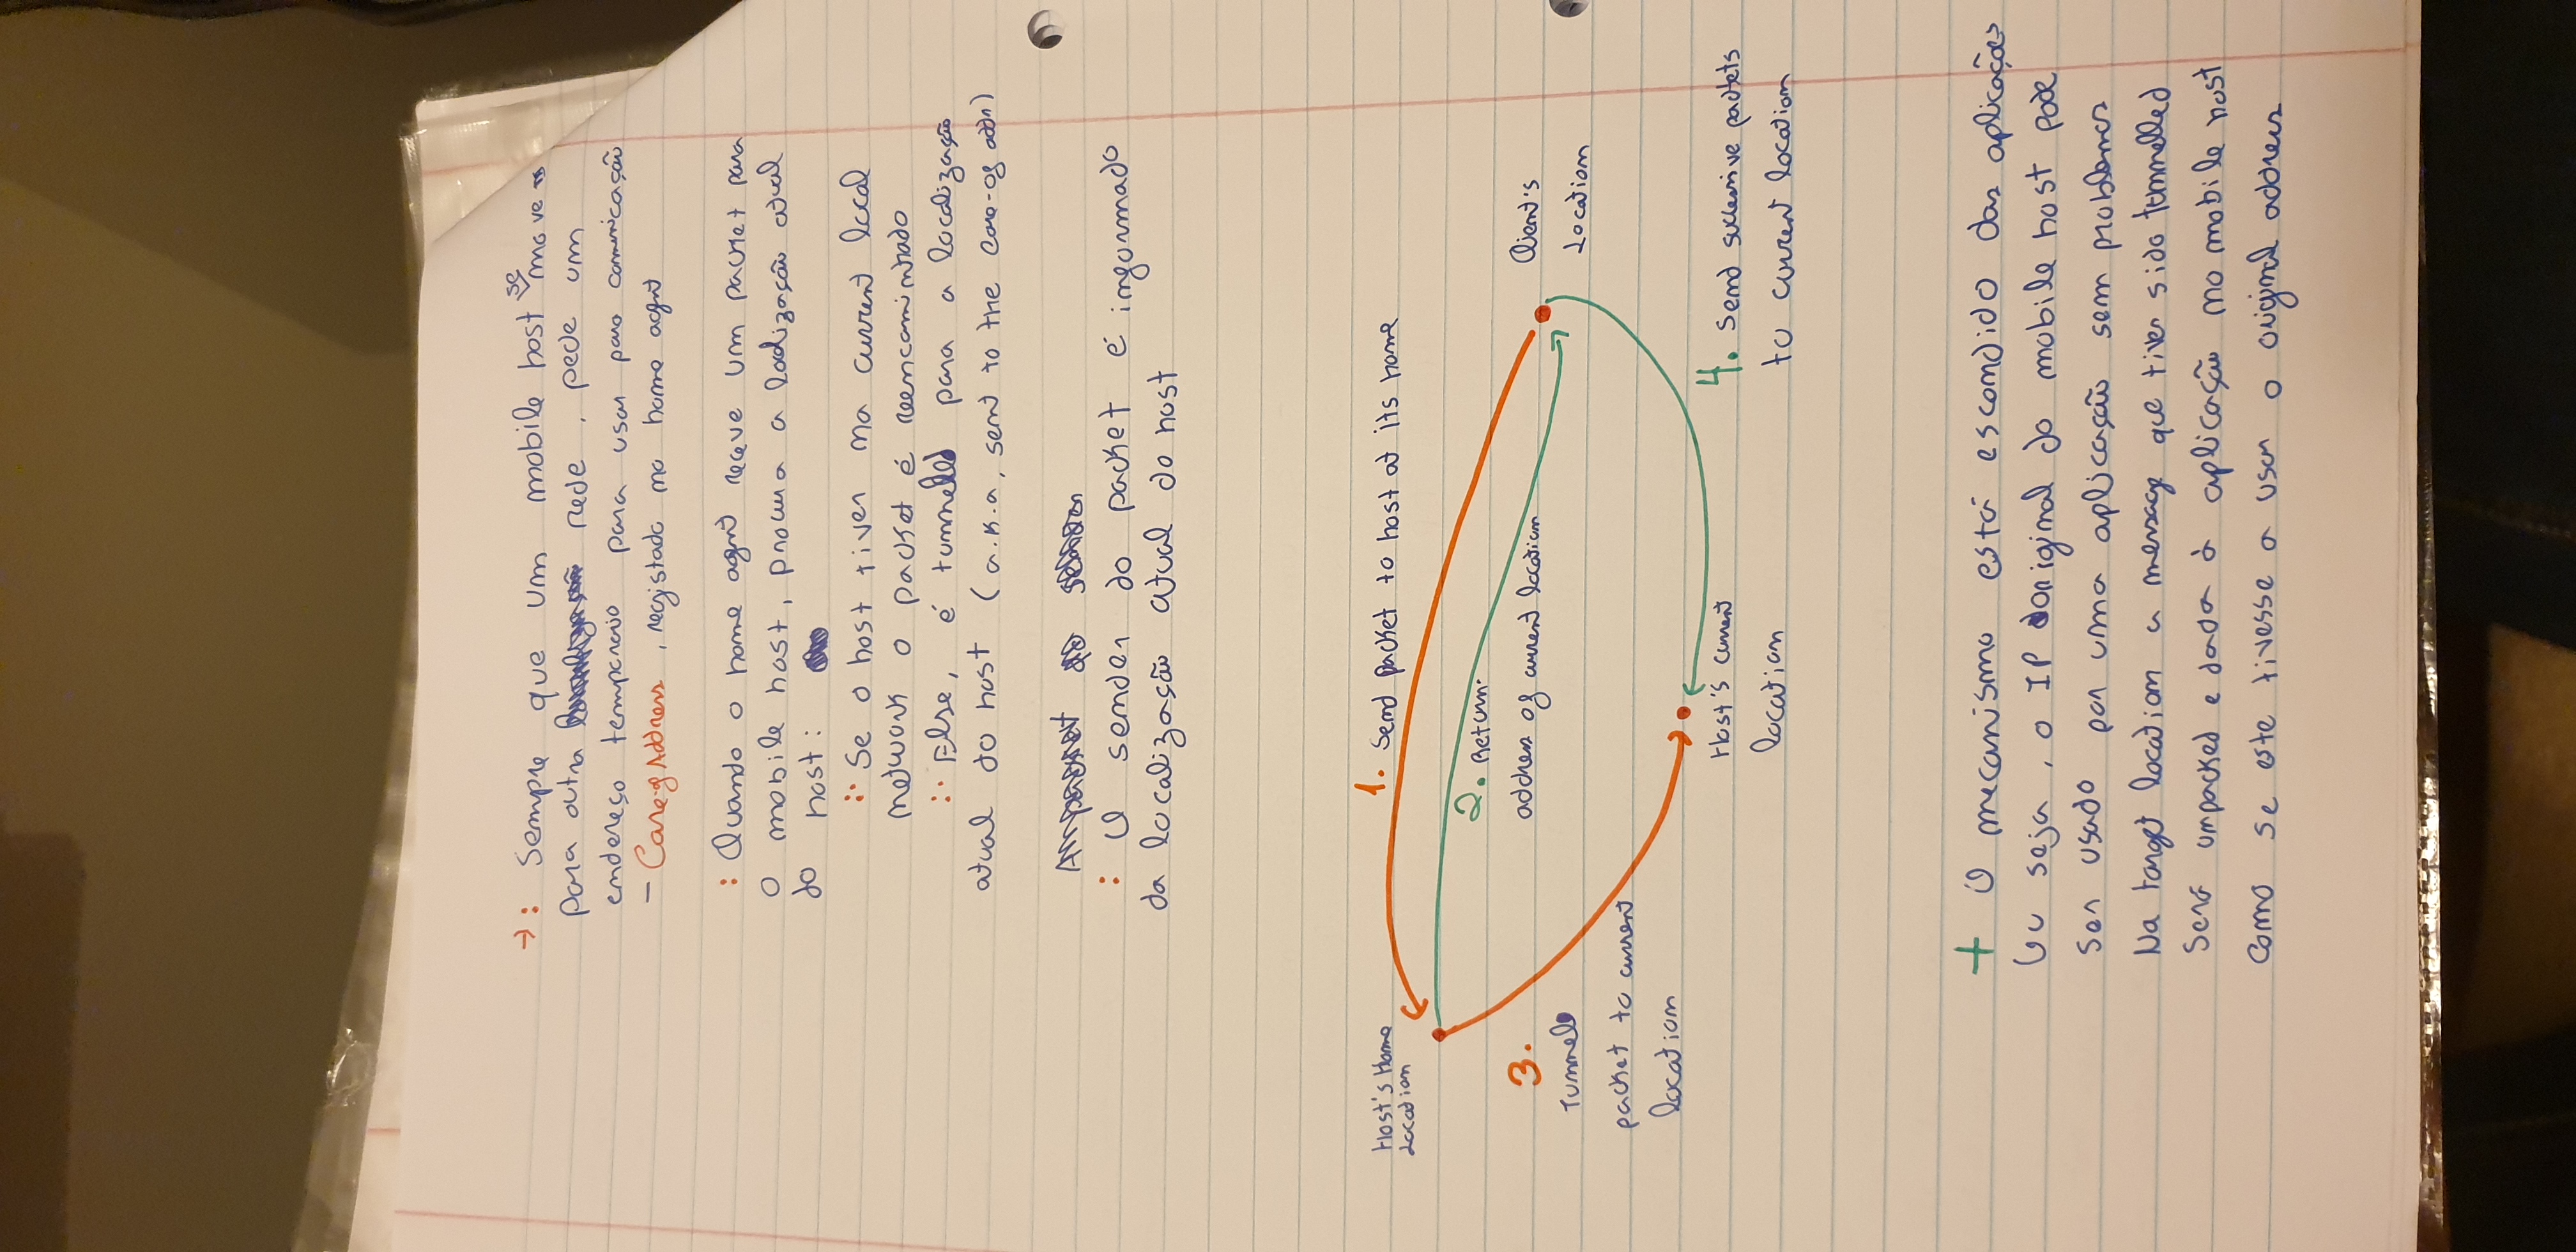 →: Sempre que um mobile host se move
para outra rede, pede um
endereço temporario para usar para comunicação
- Care-of Address, registado no home agent
: Quando o home agent receve um packet para
o mobile host, procura a localização atual
do host:
:· Se o host tiver na current local
network o packet é reencaminhado
:· Else, é tunnelled para a localização
atual do host (a.k.a, sent to the care-of addr)
: O sender do packet é informado
da localização atual do host
Host's Home
Location
1. Send packet to host at its home
2. Return
address of current location
3.
Tunnel
packet to current
location
Client's
Location
Host's current
location
4. Send successive packets
to current location
+ O mecanismo está escondido das aplicações
Ou seja, o IP original do mobile host pode
ser usado por uma aplicação sem problemas
Na target location a message que tiver sido tunnelled
será unpacked e dada à aplicação no mobile host
como se este tivesse a usar o original address